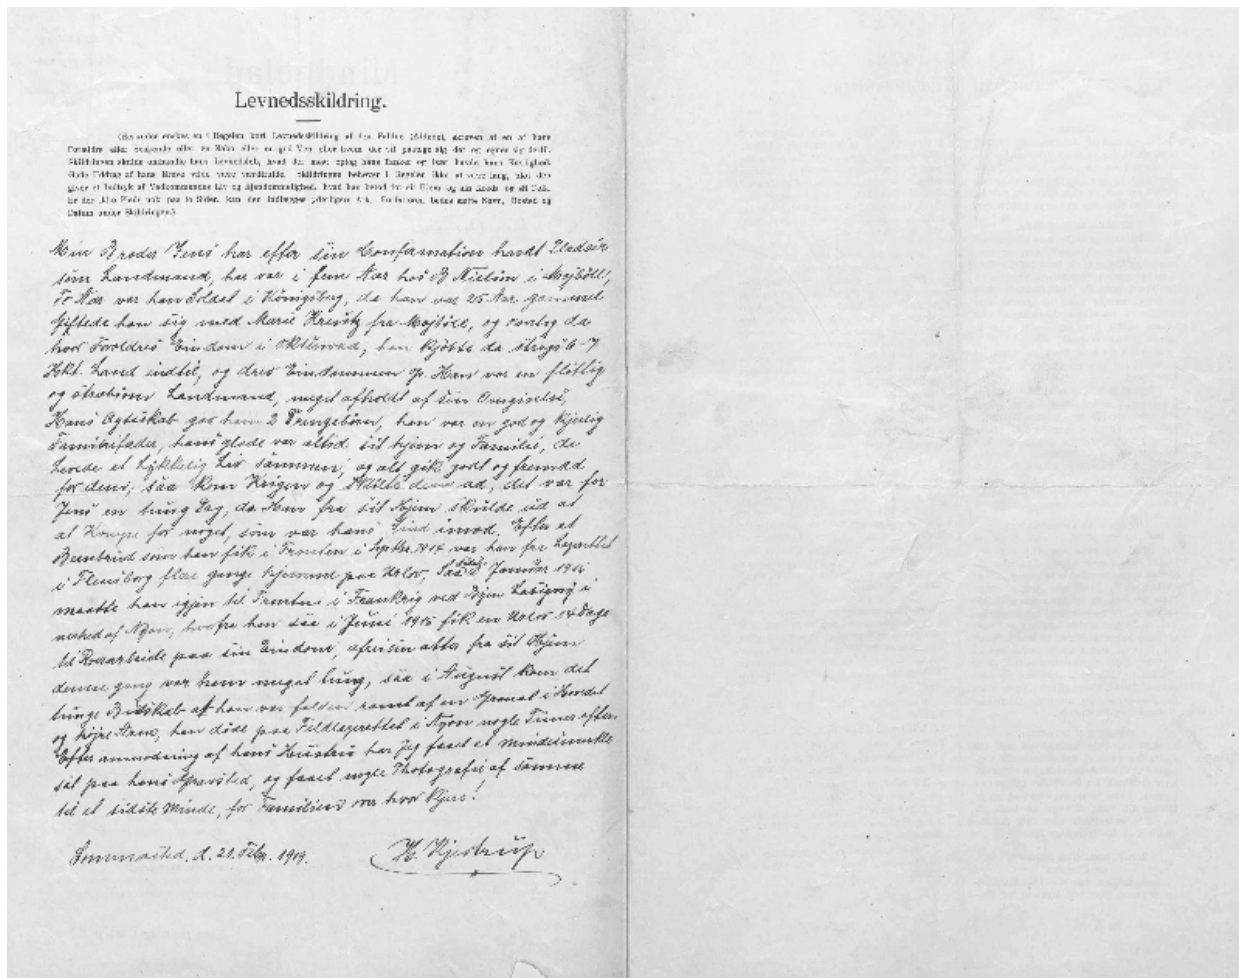 Levnedsskildring.
(Her under ønskes en i Regelen kort Levnedsskildring af den Faldne (Afdøde), skreven af en af hans
Forældre eller Søskende eller en Nabo eller en god Ven eller hvem der vil paatage sig det og egner sig dertil.
Skildringen skulde omhandle hans Levnedsløb, hvad der mest optog hans Tanker og især havde hans Kærlighed.
Gode Uddrag af hans Breve vilde være værdifulde. Skildringen behøver i Regelen ikke at være lang, blot den
giver et Indtryk af Vedkommendes Liv og Ejendommelighed, hvad han betød for sit Hjem og sin Kreds og sit Folk.
Er der ikke Plads nok paa to Sider, kan der indlægges yderligere Ark. Forfatteren bedes sætte Navn, Bosted og
Datum under Skildringen.)
Min Broder Jens har efter sin Confirmation havdt Pladser
som Landmand, har var i fem Aar hos B Nielsen i Mojbøll,
To Aar var han Soldat i Königsberg, da han var 25 Aar gammel
giftede han sig med Marie fra Mojbøll, og overtog da
hvor Forældres Eindom i, han kjøbte da 6-7
Hekt. Land indtil, og drev Eindommen op. Han var en flittig
og stræbsom Landmand, meget afholdt af sin Omgivelse,
Hans Ægteskab gav ham 2 Drengebørn, han var en god og kjerlig
Familifader, hans glæde var altid sit hjem og Familie, de
Levede et Lykkelig Liv sammen, og alt gik godt og fremad
for dem, saa kom Krigen og skilte dem ad, det var for
Jens en tung Dag, da Han fra sit Hjem skulde ud at
at Kæmpe for noget, som var hans Sind imod. Efter et
Beenbrud som han fik i Fronten i Septbr. 1914 var han fra Lazarettet
i Flensborg flere gange hjemme paa Urlov, Januar 1915
maatte han igjen til Fronten i Frankrig ved Byen Lasigny i
nærhed af Nyon, hvorfra han saa i Juni 1915 fik en Urlov 14 Dage
til Roearbeide paa sin Eindom, afreisen atter fra sit Hjem
denne gang var ham meget tung, saa i August kom det
tunge Budskab at han var falden ramt af en Granat i Hovdet
og højre Arm, han døde paa Feldlazarettet i Nyon nogle Timer efter.
Efter anmodning af hans Hustru har jeg faaet et mindesmerkke
sat paa hans Gravsted, og faaet nogle Photografie af samme
til et sidste Minde, for Familien os hvor kjær!
Sommersted, d. 21. Febr. 1919. H. Kjestrup